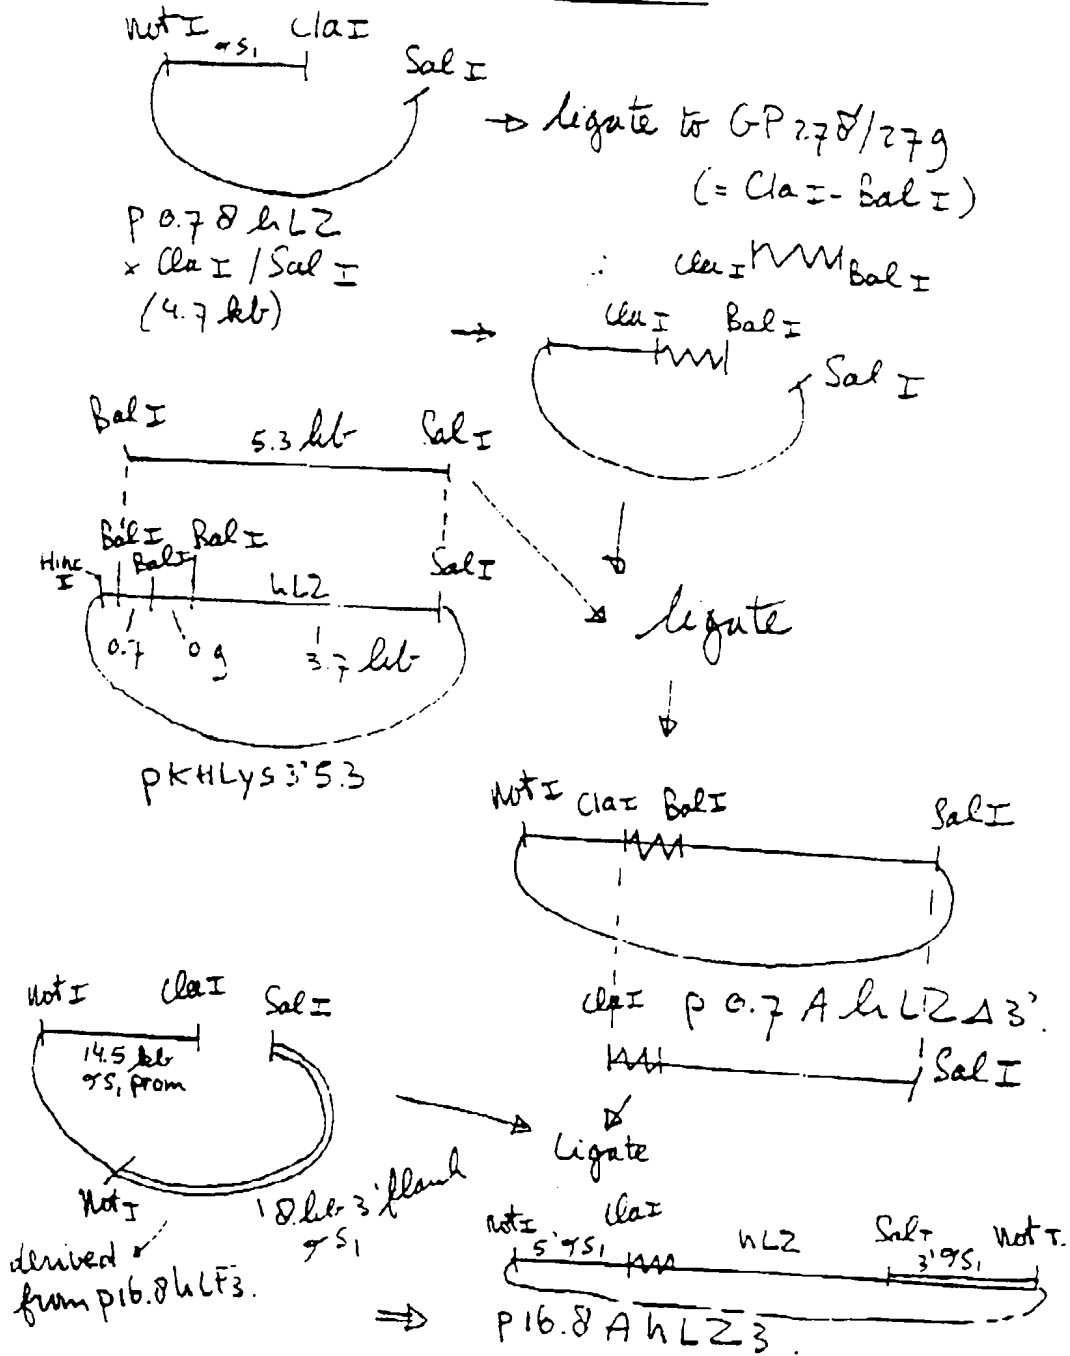 Not I ClaI
αS₁
Sal I
→ ligate to GP278/279
(= ClaI-Bal I)
p 0.7 8 hLZ
× Cla I / Sal I
(4.7 kb)
∴ Cla I Bal I
Cla I Bal I
Sal I
Bal I 5.3 kb Sal I
Bal I Bal I
Hinc I Bal I Sal I
hLZ
0.7 0.9 3.7 kb
ligate
pKHLys3'5.3
Not I ClaI BalI SalI
ClaI p 0.7 A hLZΔ3'.
Sal I
Not I ClaI Sal I
14.5 kb
αS₁ prom
Ligate
Not I
8 kb 3' flank
αS₁
derived
from p16.8hLF3.
Not I ClaI hLZ Sal I Not I.
5'αS₁ 3'αS₁
⇒ p16.8 A hLZ3.